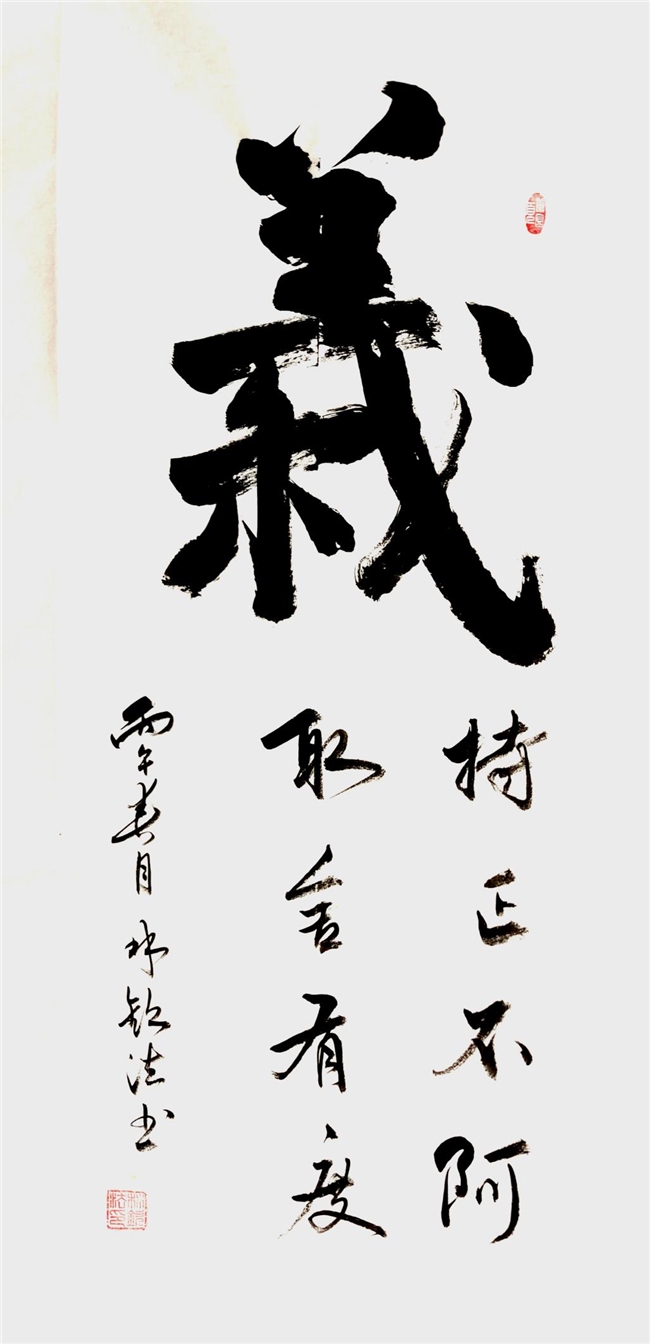 義
持正不阿
取舍有度
丙午春月林钦法书